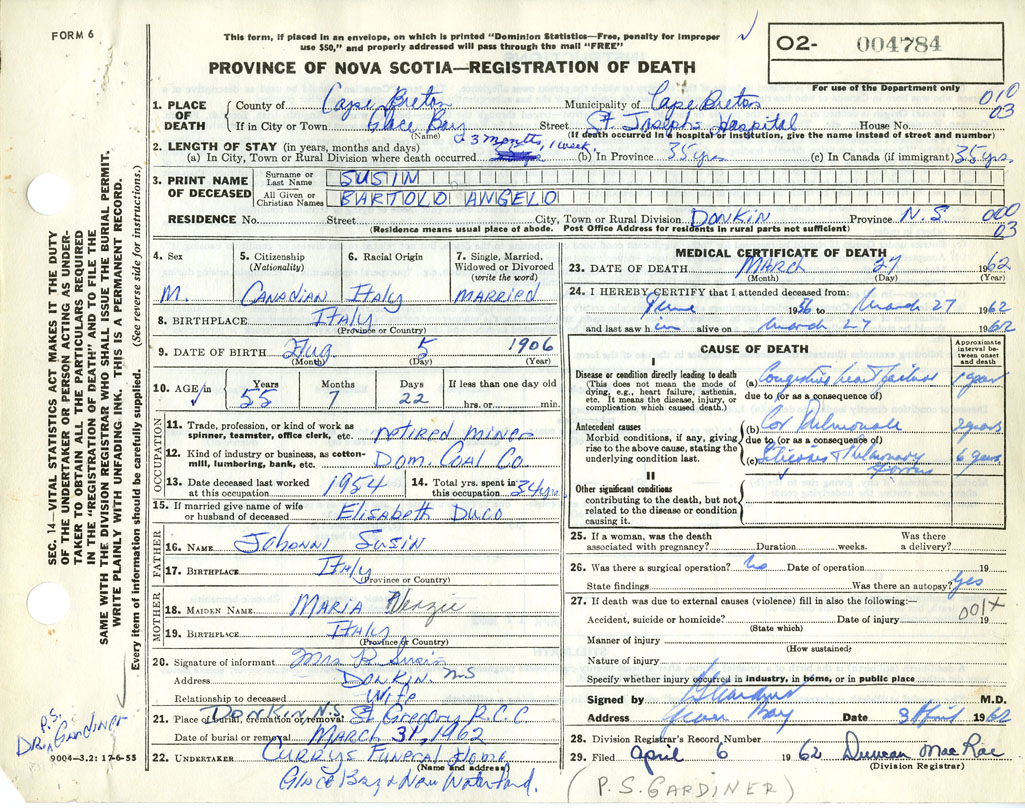 FORM 6
This form, if placed in an envelope, on which is printed "Dominion Statistics—Free, penalty for improper
use $50," and properly addressed will pass through the mail "FREE"
PROVINCE OF NOVA SCOTIA—REGISTRATION OF DEATH
02- 004784
For use of the Department only
010
03
1. PLACE OF DEATH County of Cape Breton Municipality of Cape Breton
If in City or Town Glace Bay Street St. Joseph's Hospital House No.
(Name) (If death occurred in a hospital or institution, give the name instead of street and number)
2. LENGTH OF STAY (in years, months and days) 3 months, 1 week.
(a) In City, Town or Rural Division where death occurred (b) In Province 35 yrs. (c) In Canada (if immigrant) 35 yrs.
3. PRINT NAME OF DECEASED Surname or Last Name SUSIN
All Given or Christian Names BARTOLO ANGELO
RESIDENCE No. Street City, Town or Rural Division DONKIN Province N.S 000
(Residence means usual place of abode. Post Office Address for residents in rural parts not sufficient) 03
4. Sex M.
5. Citizenship (Nationality) Canadian
6. Racial Origin Italy
7. Single, Married, Widowed or Divorced (write the word) MARRIED
8. BIRTHPLACE Italy
(Province or Country)
9. DATE OF BIRTH Aug. 5 1906
(Month) (Day)
10. AGE in Years 55 Months 7 Days 22 If less than one day old hrs. or min.
OCCUPATION
11. Trade, profession, or kind of work as spinner, teamster, office clerk, etc. retired miner
12. Kind of industry or business, as cotton-mill, lumbering, bank, etc. Dom. Coal Co
13. Date deceased last worked at this occupation 1954 14. Total yrs. spent in this occupation 34 yrs.
15. If married give name of wife or husband of deceased Elisabeth Duco
FATHER
16. NAME Johonni Susin
17. BIRTHPLACE Italy
(Province or Country)
MOTHER
18. MAIDEN NAME MARIA
19. BIRTHPLACE Italy
(Province or Country)
20. Signature of informant Mrs B Susin
Address DONKIN. N.S
Relationship to deceased Wife
21. Place of burial, cremation or removal DONKIN N.S St Gregory R.C.C
Date of burial or removal MARCH 31, 1962
22. UNDERTAKER CURRYS Funeral Home
(Name and address)
Glace Bay & New Waterford.
MEDICAL CERTIFICATE OF DEATH
23. DATE OF DEATH March 27 1962
(Month) (Day) (Year)
24. I HEREBY CERTIFY that I attended deceased from:
June 1956 to March 27 1962
and last saw him alive on March 27 1962
CAUSE OF DEATH
Approximate interval between onset and death
I
Disease or condition directly leading to death
(This does not mean the mode of dying, e.g., heart failure, asthenia, etc. It means the disease, injury, or complication which caused death.)
(a) Congestive heart failure 1 year
due to (or as a consequence of)
Antecedent causes
Morbid conditions, if any, giving rise to the above cause, stating the underlying condition last.
(b) Cor Pulmonale 2 years
due to (or as a consequence of)
(c) & Pulmonary 6 years
II
Other significant conditions
contributing to the death, but not related to the disease or condition causing it.
25. If a woman, was the death associated with pregnancy? Duration weeks. Was there a delivery?
26. Was there a surgical operation? No Date of operation 19
State findings Was there an autopsy? Yes
27. If death was due to external causes (violence) fill in also the following:—
001X
Accident, suicide or homicide? Date of injury 19
(State which)
Manner of injury
(How sustained)
Nature of injury
Specify whether injury occurred in industry, in home, or in public place
Signed by P S Gardiner M.D.
Address Glace Bay Date 3 April 1962
28. Division Registrar's Record Number
29. Filed April 6 1962 Duncan MacRae
(Division Registrar)
(P.S. GARDINER)
SEC. 14—VITAL STATISTICS ACT MAKES IT THE DUTY
OF THE UNDERTAKER OR PERSON ACTING AS UNDER-
TAKER TO OBTAIN ALL THE PARTICULARS REQUIRED
IN THE "REGISTRATION OF DEATH" AND TO FILE THE
SAME WITH THE DIVISION REGISTRAR WHO SHALL ISSUE THE BURIAL PERMIT.
WRITE PLAINLY WITH UNFADING INK. THIS IS A PERMANENT RECORD.
Every item of information should be carefully supplied. (See reverse side for instructions.)
P.S.
DR. GARDINER
9004—3.2: 17-6-55